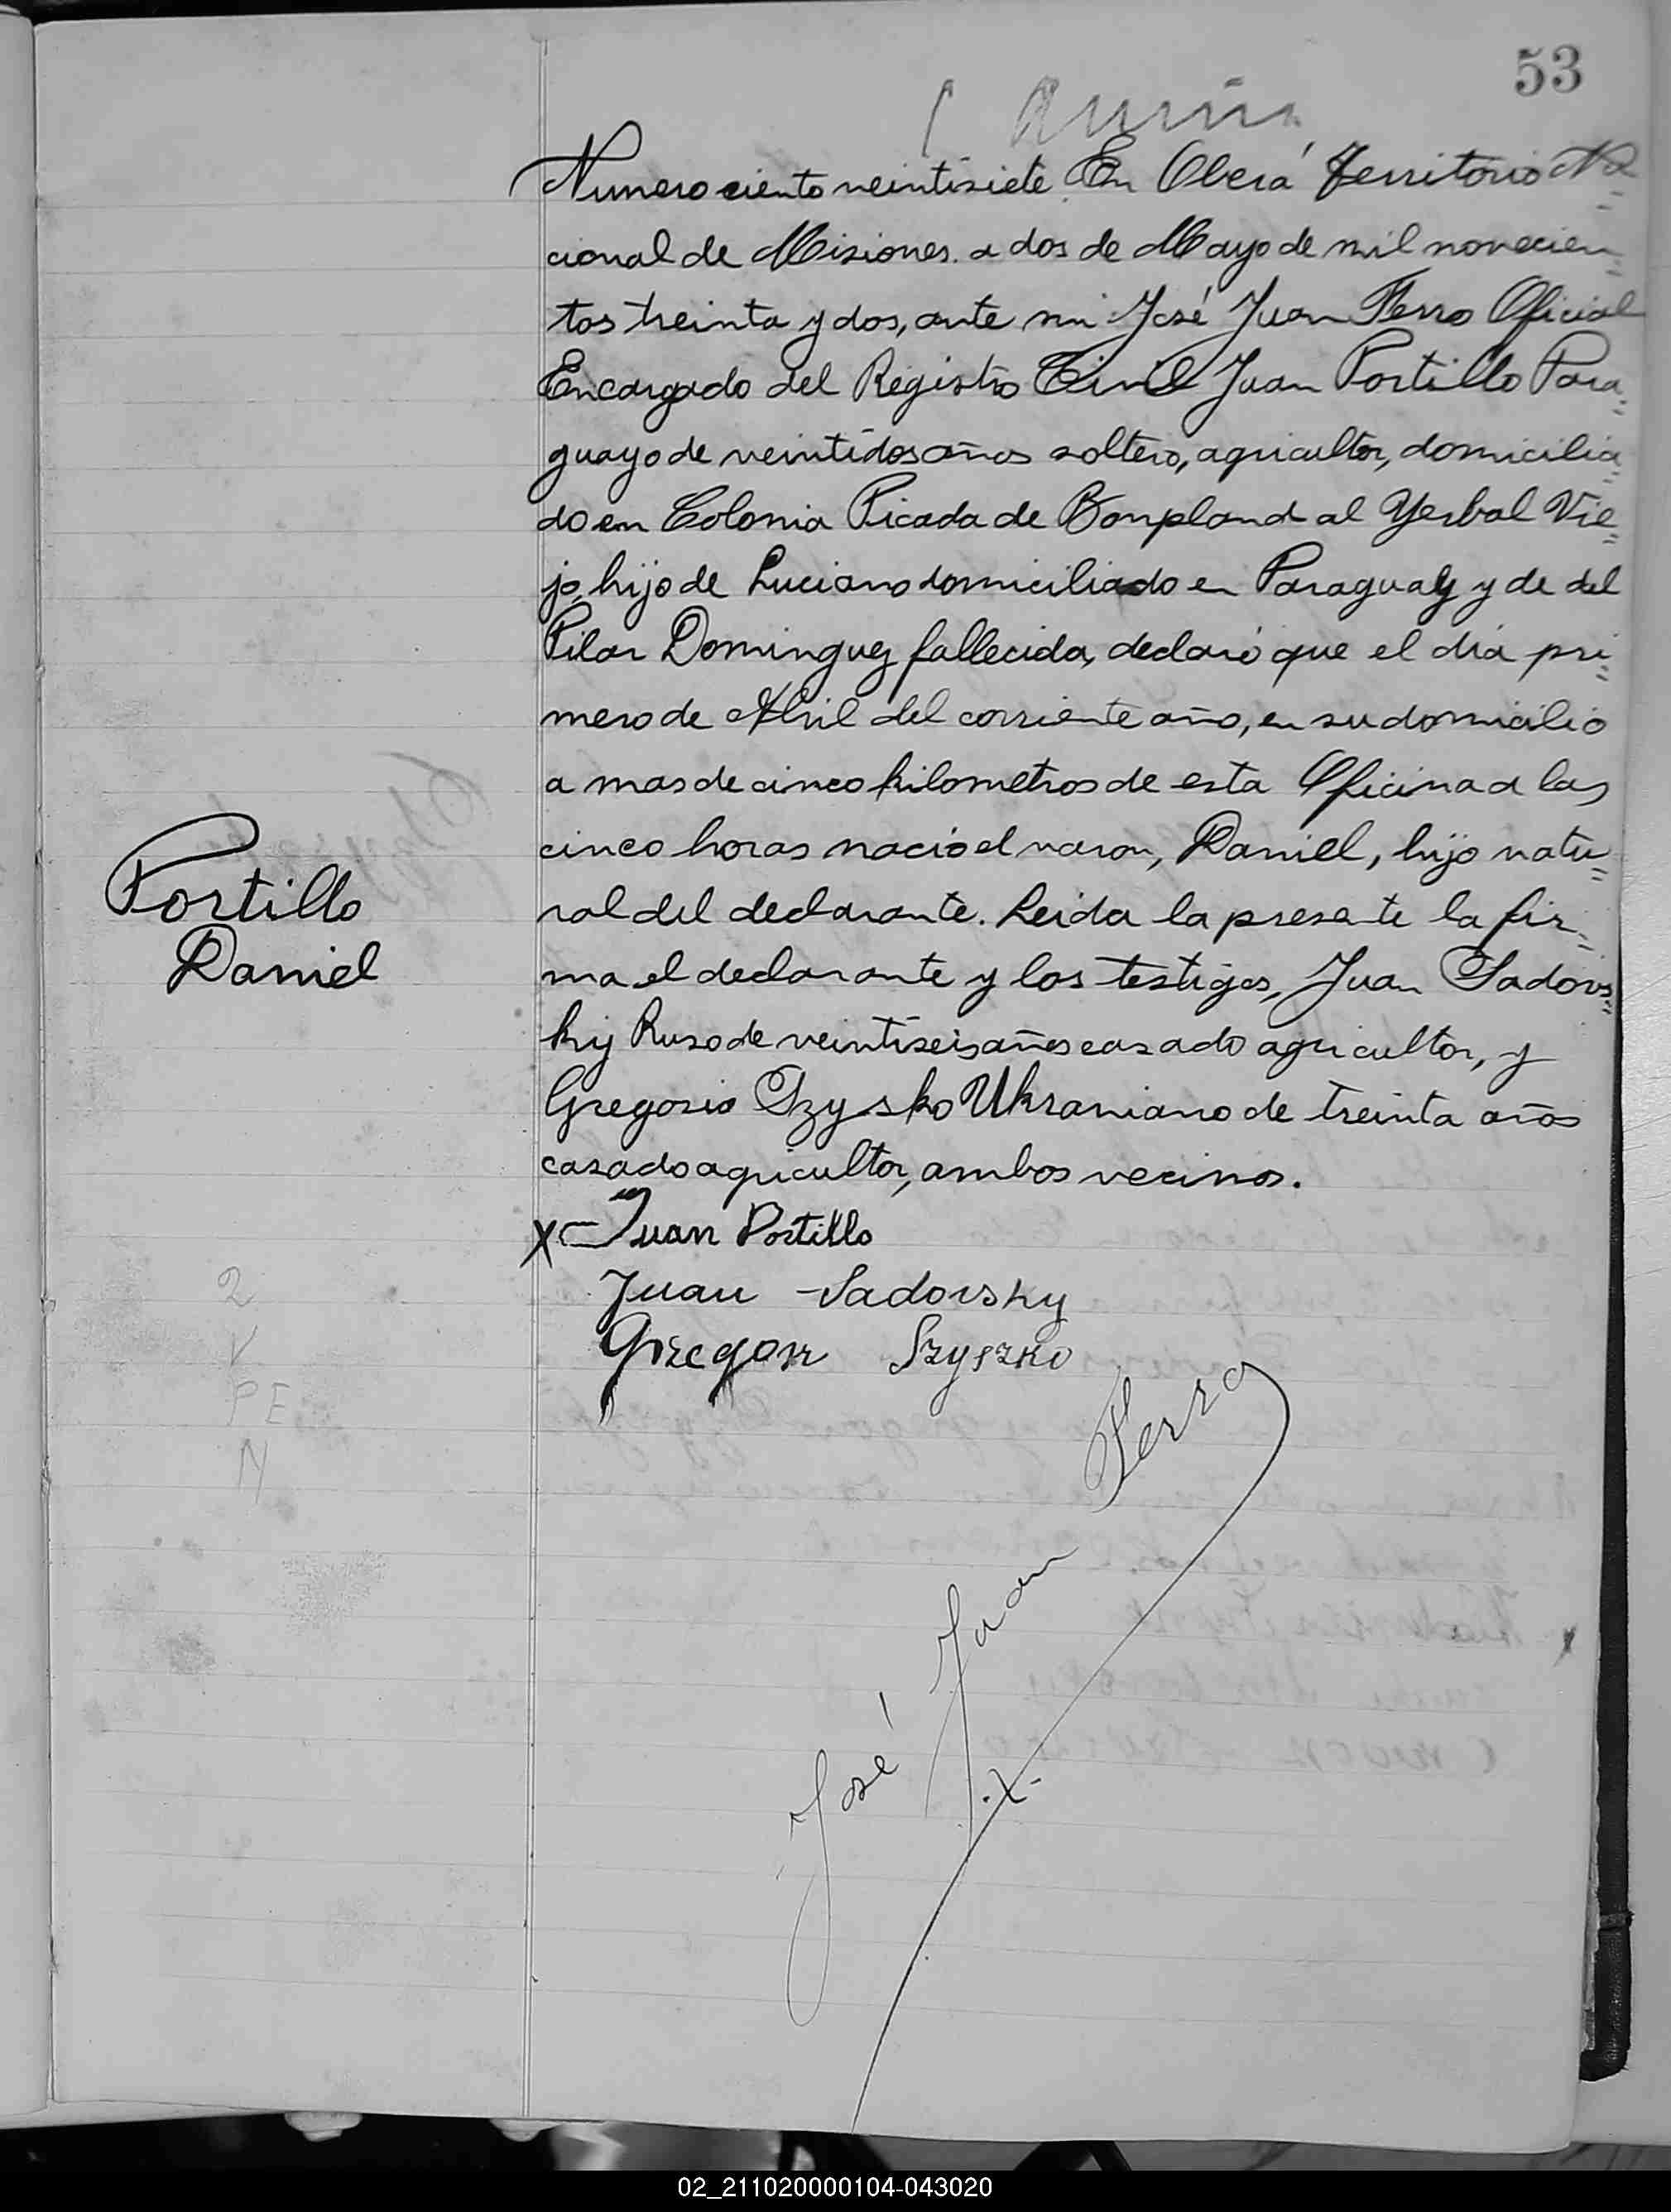 53
Numero ciento veintisiete. En Oberá Territorio Na=
cional de Misiones. a dos de Mayo de mil novecien=
tos treinta y dos, ante mi José Juan Ferro Oficial
Encargado del Registro Civil Juan Portillo Para=
guayo de veintidos años soltero, agricultor, domicilia=
do en Colonia Picada de Bonpland al Yerbal Vie=
jo, hijo de Luciano domiciliado en Paraguay y de del
Pilar Dominguez fallecida, declaró que el dia pri=
mero de Abril del corriente año, en su domicilio
a mas de cinco kilometros de esta Oficina a las
cinco horas nació el varon, Daniel, hijo natu=
ral del declarante. Leida la presente la fir=
ma el declarante y los testigos, Juan Sadovs=
kij Ruso de veintiseis años casado agricultor, y
Gregorio Szysko Ukraniano de treinta años
casado agricultor, ambos vecinos.
Portillo
Daniel
X Juan Portillo
Juan Sadovsky
Gregor Szyszko
José Juan Ferro
2
V
PE
N
02_211020000104-043020